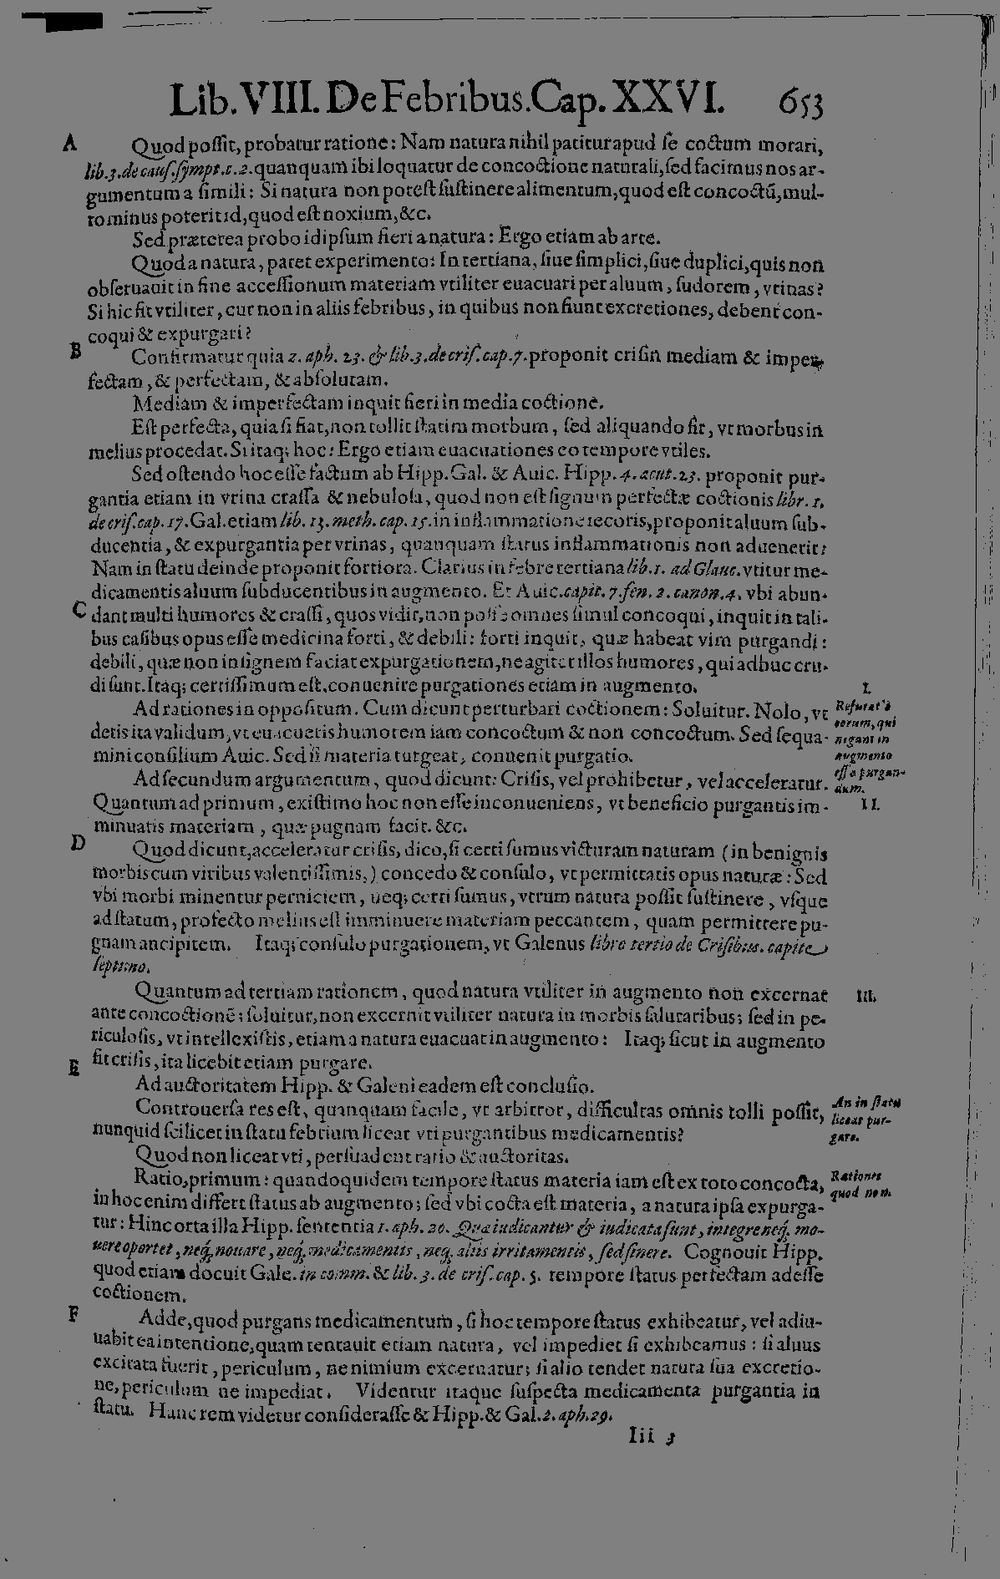 Lib. VIII. De Febribus. Cap. XXVI. 653
A Quod possit, probatur ratione: Nam natura nihil patitur apud se coctum morari,
lib. 3. de caus. sympt. c. 2. quanquam ibi loquatur de concoctione naturali, sed facimus nos ar-
gumentum a simili: Si natura non potest sustinere alimentum, quod est concoctũ, mul-
to minus poterit id, quod est noxium, &c.
Sed præterea probo id ipsum fieri a natura: Ergo etiam ab arte.
Quod a natura, patet experimento: In tertiana, siue simplici, siue duplici, quis non
obseruauit in fine accessionum materiam vtiliter euacuari per aluum, sudorem, vrinas?
Si hic fit vtiliter, cur non in aliis febribus, in quibus non fiunt excretiones, debent con-
coqui & expurgari?
B Confirmatur quia 2. aph. 23. & lib. 3. de cris. cap. 7. proponit crisin mediam & imper-
fectam, & perfectam, & absolutam.
Mediam & imperfectam inquit fieri in media coctione.
Est perfecta, quia si fiat, non tollit statim morbum, sed aliquando fit, vt morbus in
melius procedat. Si itaq; hoc: Ergo etiam euacuationes eo tempore vtiles.
Sed ostendo hoc esse factum ab Hipp. Gal. & Auic. Hipp. 4. acut. 23. proponit pur-
gantia etiam in vrina crassa & nebulosa, quod non est signum perfectæ coctionis libr. 1.
de cris. cap. 17. Gal. etiam lib. 13. meth. cap. 15. in inflammatione iecoris, proponit aluum sub-
ducentia, & expurgantia per vrinas, quanquam status inflammationis non aduenerit:
Nam in statu deinde proponit fortiora. Clarius in febre tertiana lib. 1. ad Glauc. vtitur me-
dicamentis aluum subducentibus in augmento. Et Auic. capit. 7. fen. 2. canon. 4. vbi abun-
C dant multi humores & crassi, quos vidit, non posse omnes simul concoqui, inquit in tali-
bus casibus opus esse medicina forti, & debili: forti inquit, quæ habeat vim purgandi:
debili, quæ non insignem faciat expurgationem, ne agitet illos humores, qui adhuc cru-
di sunt. Itaq; certissimum est, conuenire purgationes etiam in augmento.
I.
Ad rationes in oppositum. Cum dicunt perturbari coctionem: Soluitur. Nolo, vt
detis ita validum, vt euacuetis humorem iam concoctum & non concoctum. Sed sequa-
mini consilium Auic. Sed si materia turgeat, conuenit purgatio.
Refutat'o
eorum, qui
negant in
augmento
esse purgan-
dum.
Ad secundum argumentum, quod dicunt: Crisis, vel prohibetur, vel acceleratur.
Quantum ad primum, existimo hoc non esse inconueniens, vt beneficio purgantis im-
II.
minuatis materiam, quæ pugnam facit. &c.
D Quod dicunt, acceleratur crisis, dico, si certi sumus victuram naturam (in benignis
morbis cum viribus valentissimis,) concedo & consulo, vt permittatis opus naturæ: Sed
vbi morbi minentur perniciem, neq; certi sumus, vtrum natura possit sustinere, vsque
ad statum, profecto melius est imminuere materiam peccantem, quam permittere pu-
gnam ancipitem. Itaq; consulo purgationem, vt Galenus libro tertio de Crisibus. capite
septimo.
Quantum ad tertiam rationem, quod natura vtiliter in augmento non excernat
III.
ante concoctionẽ; soluitur, non excernit vtiliter natura in morbis salutaribus; sed in pe-
riculosis, vt intellexistis, etiam a natura euacuat in augmento: Itaq; sicut in augmento
E fit crisis, ita licebit etiam purgare.
Ad auctoritatem Hipp. & Galeni eadem est conclusio.
Controuersa res est, quanquam facile, vt arbitror, difficultas omnis tolli possit,
nunquid scilicet in statu febrium liceat vti purgantibus medicamentis?
An in statu
liceat pur-
gare.
Quod non liceat vti, persuadent ratio & auctoritas.
Ratio, primum: quandoquidem tempore status materia iam est ex toto concocta,
Rationes
quod non.
in hoc enim differt status ab augmento; sed vbi cocta est materia, a natura ipsa expurga-
tur: Hinc orta illa Hipp. sententia 1. aph. 20. Quæ iudicantur & iudicata sunt, integre neq; mo-
uere oportet, neq; nouare, neq; medicamentis, neq; aliis irritamentis, sed sinere. Cognouit Hipp.
quod etiam docuit Gale. in comm. & lib. 3. de cris. cap. 5. tempore status perfectam adesse
coctionem.
F Adde, quod purgans medicamentum, si hoc tempore status exhibeatur, vel adiu-
uabit ea intentione, quam tentauit etiam natura, vel impediet si exhibeamus: si aluus
excitata fuerit, periculum, ne nimium excernatur; si alio tendet natura sua excretio-
ne, periculum ne impediat. Videntur itaque suspecta medicamenta purgantia in
statu. Hanc rem videtur considerasse & Hipp. & Gal. 2. aph. 29.
Iii 3